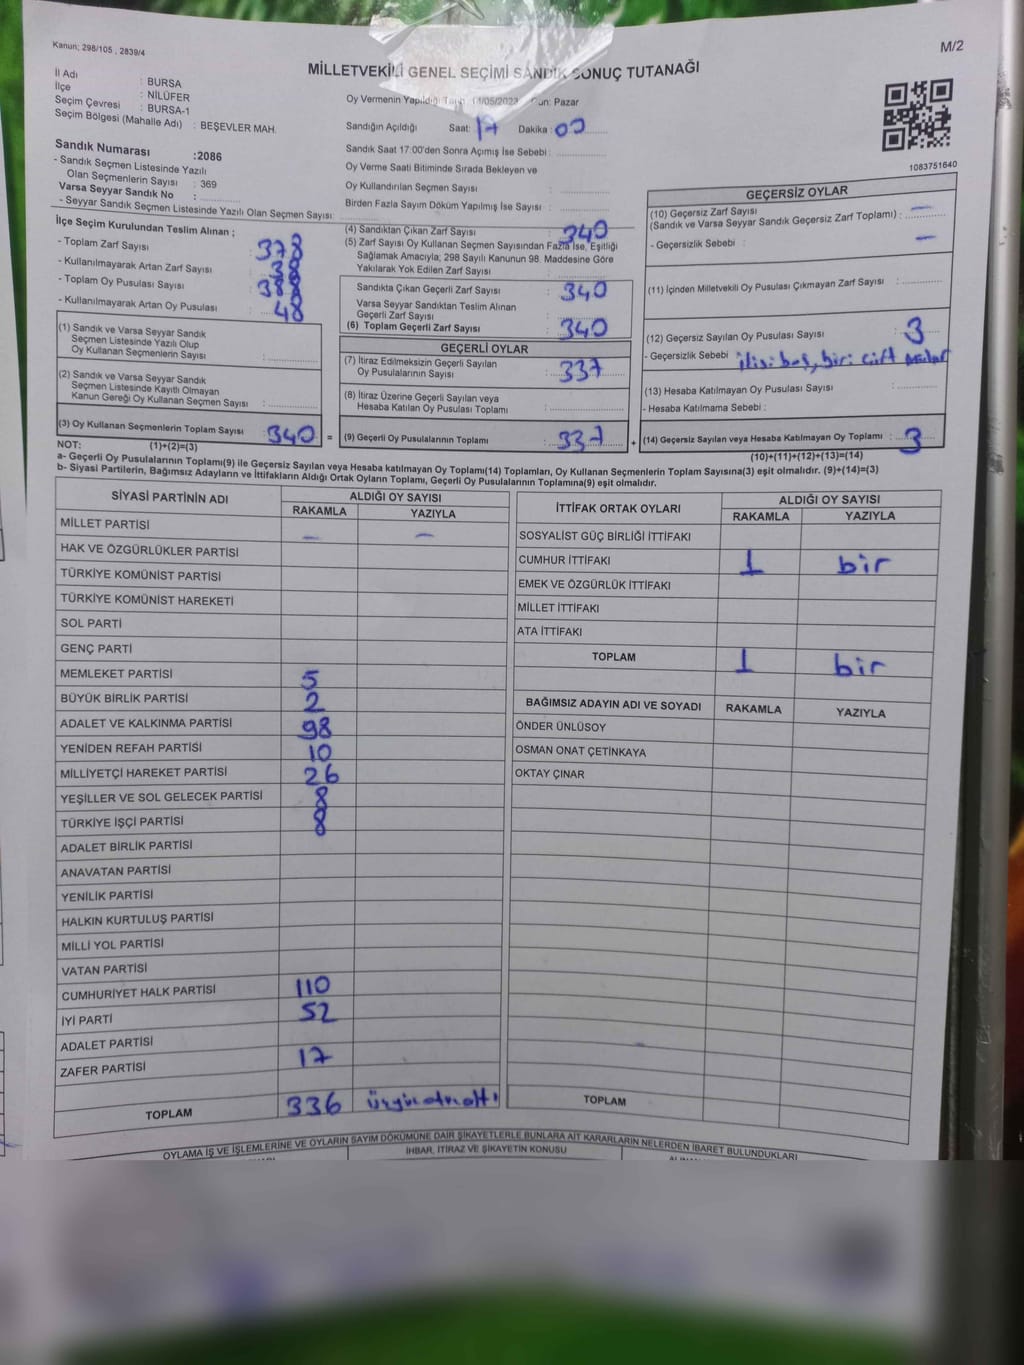 Kanun; 298/105 , 2839/4
M/2
MİLLETVEKİLİ GENEL SEÇİMİ SANDIK SONUÇ TUTANAĞI
İl Adı : BURSA
İlçe : NİLÜFER
Seçim Çevresi : BURSA-1
Seçim Bölgesi (Mahalle Adı) : BEŞEVLER MAH.
Sandık Numarası :2086
- Sandık Seçmen Listesinde Yazılı
Olan Seçmenlerin Sayısı : 369
Varsa Seyyar Sandık No :
- Seyyar Sandık Seçmen Listesinde Yazılı Olan Seçmen Sayısı:
Oy Vermenin Yapıldığı Tarih 14/05/2023 Gün: Pazar
Sandığın Açıldığı Saat: 17 Dakika: 00
Sandık Saat 17:00'den Sonra Açımış İse Sebebi :
Oy Verme Saati Bitiminde Sırada Bekleyen ve
Oy Kullandırılan Seçmen Sayısı :
Birden Fazla Sayım Döküm Yapılmış İse Sayısı :
1083751640
İlçe Seçim Kurulundan Teslim Alınan ;
- Toplam Zarf Sayısı : 378
- Kullanılmayarak Artan Zarf Sayısı : 38
- Toplam Oy Pusulası Sayısı : 388
- Kullanılmayarak Artan Oy Pusulası : 48
(1) Sandık ve Varsa Seyyar Sandık
Seçmen Listesinde Yazılı Olup
Oy Kullanan Seçmenlerin Sayısı :
(2) Sandık ve Varsa Seyyar Sandık
Seçmen Listesinde Kayıtlı Olmayan
Kanun Gereği Oy Kullanan Seçmen Sayısı :
(3) Oy Kullanan Seçmenlerin Toplam Sayısı : 340 =
(4) Sandıktan Çıkan Zarf Sayısı : 340
(5) Zarf Sayısı Oy Kullanan Seçmen Sayısından Fazla İse, Eşitliği
Sağlamak Amacıyla; 298 Sayılı Kanunun 98. Maddesine Göre
Yakılarak Yok Edilen Zarf Sayısı :
Sandıkta Çıkan Geçerli Zarf Sayısı : 340
Varsa Seyyar Sandıktan Teslim Alınan
Geçerli Zarf Sayısı :
(6) Toplam Geçerli Zarf Sayısı : 340
GEÇERLİ OYLAR
(7) İtiraz Edilmeksizin Geçerli Sayılan
Oy Pusulalarının Sayısı : 337
(8) İtiraz Üzerine Geçerli Sayılan veya
Hesaba Katılan Oy Pusulası Toplamı :
(9) Geçerli Oy Pusulalarının Toplamı : 337 +
GEÇERSİZ OYLAR
(10) Geçersiz Zarf Sayısı
(Sandık ve Varsa Seyyar Sandık Geçersiz Zarf Toplamı) : —
- Geçersizlik Sebebi : —
(11) İçinden Milletvekili Oy Pusulası Çıkmayan Zarf Sayısı :
(12) Geçersiz Sayılan Oy Pusulası Sayısı : 3
- Geçersizlik Sebebi : ikisi boş, biri çift mühür
(13) Hesaba Katılmayan Oy Pusulası Sayısı :
- Hesaba Katılmama Sebebi :
(14) Geçersiz Sayılan veya Hesaba Katılmayan Oy Toplamı : 3
NOT: (1)+(2)=(3)
(10)+(11)+(12)+(13)=(14)
a- Geçerli Oy Pusulaları Toplamı(9) ile Geçersiz Sayılan veya Hesaba katılmayan Oy Toplamı(14) Toplamları, Oy Kullanan Seçmenlerin Toplam Sayısına(3) eşit olmalıdır. (9)+(14)=(3)
b- Siyasi Partilerin, Bağımsız Adayların ve İttifakların Aldığı Ortak Oyların Toplamı, Geçerli Oy Pusulalarının Toplamına(9) eşit olmalıdır.
SİYASİ PARTİNİN ADI ALDIĞI OY SAYISI
RAKAMLA YAZIYLA
MİLLET PARTİSİ — —
HAK VE ÖZGÜRLÜKLER PARTİSİ
TÜRKİYE KOMÜNİST PARTİSİ
TÜRKİYE KOMÜNİST HAREKETİ
SOL PARTİ
GENÇ PARTİ
MEMLEKET PARTİSİ 5
BÜYÜK BİRLİK PARTİSİ 2
ADALET VE KALKINMA PARTİSİ 98
YENİDEN REFAH PARTİSİ 10
MİLLİYETÇİ HAREKET PARTİSİ 26
YEŞİLLER VE SOL GELECEK PARTİSİ 8
TÜRKİYE İŞÇİ PARTİSİ 8
ADALET BİRLİK PARTİSİ
ANAVATAN PARTİSİ
YENİLİK PARTİSİ
HALKIN KURTULUŞ PARTİSİ
MİLLİ YOL PARTİSİ
VATAN PARTİSİ
CUMHURİYET HALK PARTİSİ 110
İYİ PARTİ 52
ADALET PARTİSİ
ZAFER PARTİSİ 17
TOPLAM 336 üçyüzotuzaltı
İTTİFAK ORTAK OYLARI ALDIĞI OY SAYISI
RAKAMLA YAZIYLA
SOSYALİST GÜÇ BİRLİĞİ İTTİFAKI
CUMHUR İTTİFAKI 1 bir
EMEK VE ÖZGÜRLÜK İTTİFAKI
MİLLET İTTİFAKI
ATA İTTİFAKI
TOPLAM 1 bir
BAĞIMSIZ ADAYIN ADI VE SOYADI RAKAMLA YAZIYLA
ÖNDER ÜNLÜSOY
OSMAN ONAT ÇETİNKAYA
OKTAY ÇINAR
TOPLAM
OYLAMA İŞ VE İŞLEMLERİNE VE OYLARIN SAYIM DÖKÜMÜNE DAİR ŞİKAYETLERLE BUNLARA AİT KARARLARIN NELERDEN İBARET BULUNDUKLARI
İHBAR, İTİRAZ VE ŞİKAYETİN KONUSU